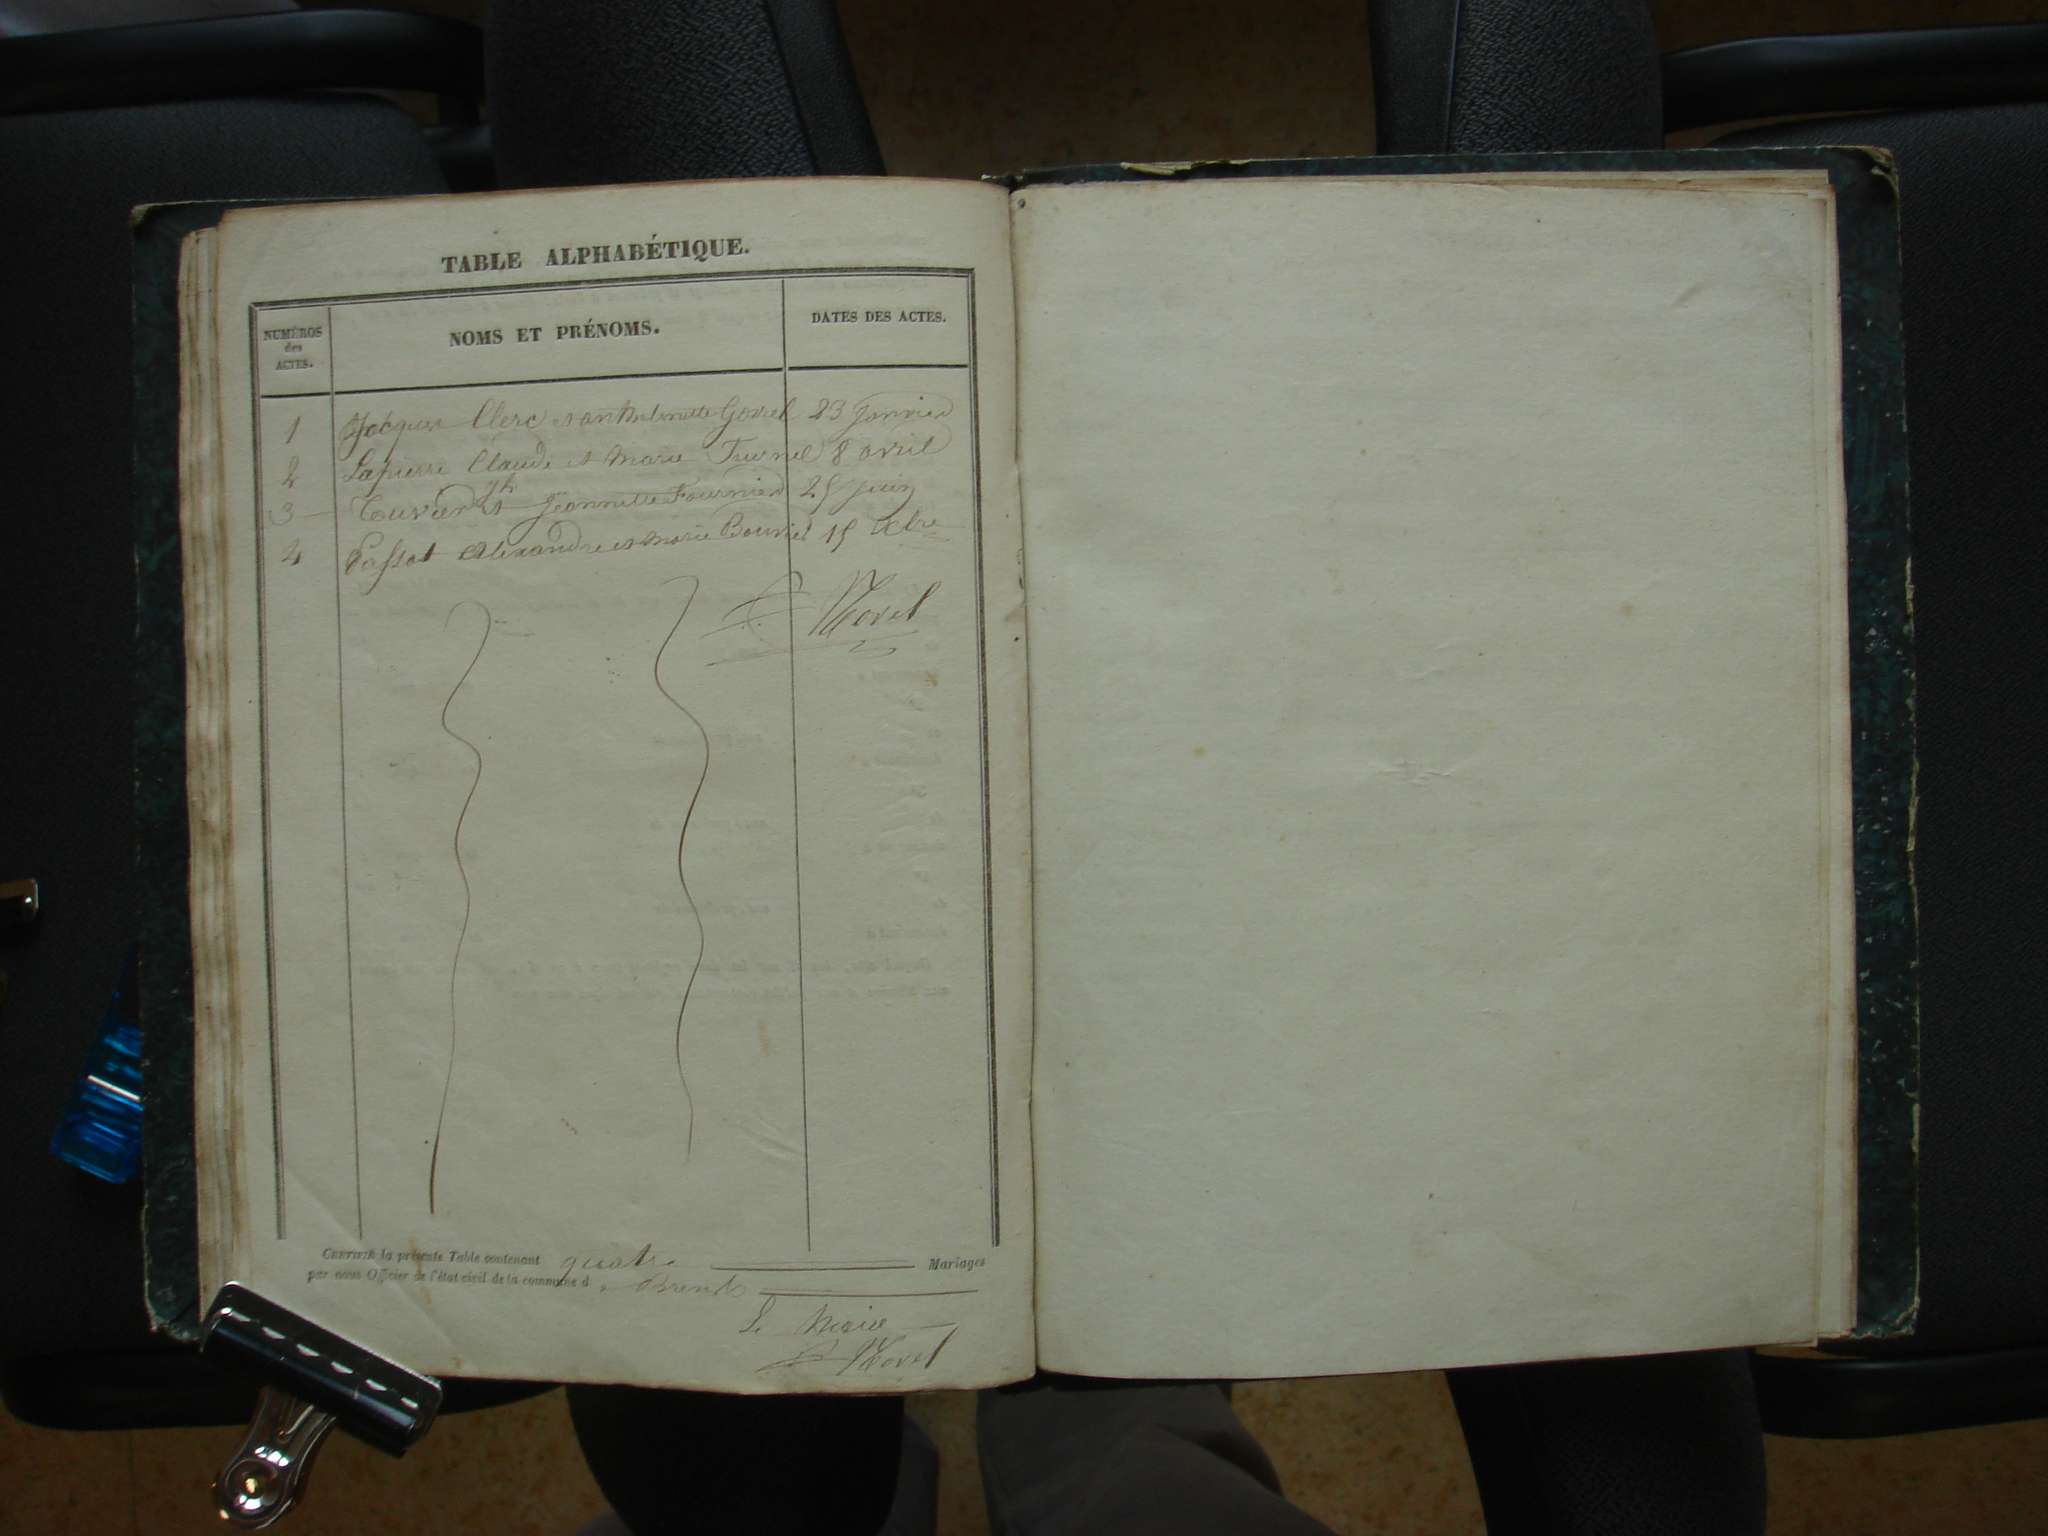 TABLE ALPHABÉTIQUE.
NUMÉROS des ACTES. NOMS ET PRÉNOMS. DATES DES ACTES.
1 Jacques Clerc et antoinette 23 Janvier
2 Lapierre Claude et Marie 8 avril
3 Jh et Jeannette Fournier 25 juin
4 Passot Alexandre et Marie 15 Xbre
CERTIFIÉ la présente Table contenant quatre Mariages
par nous Officier de l'état civil de la commune d
Le Maire